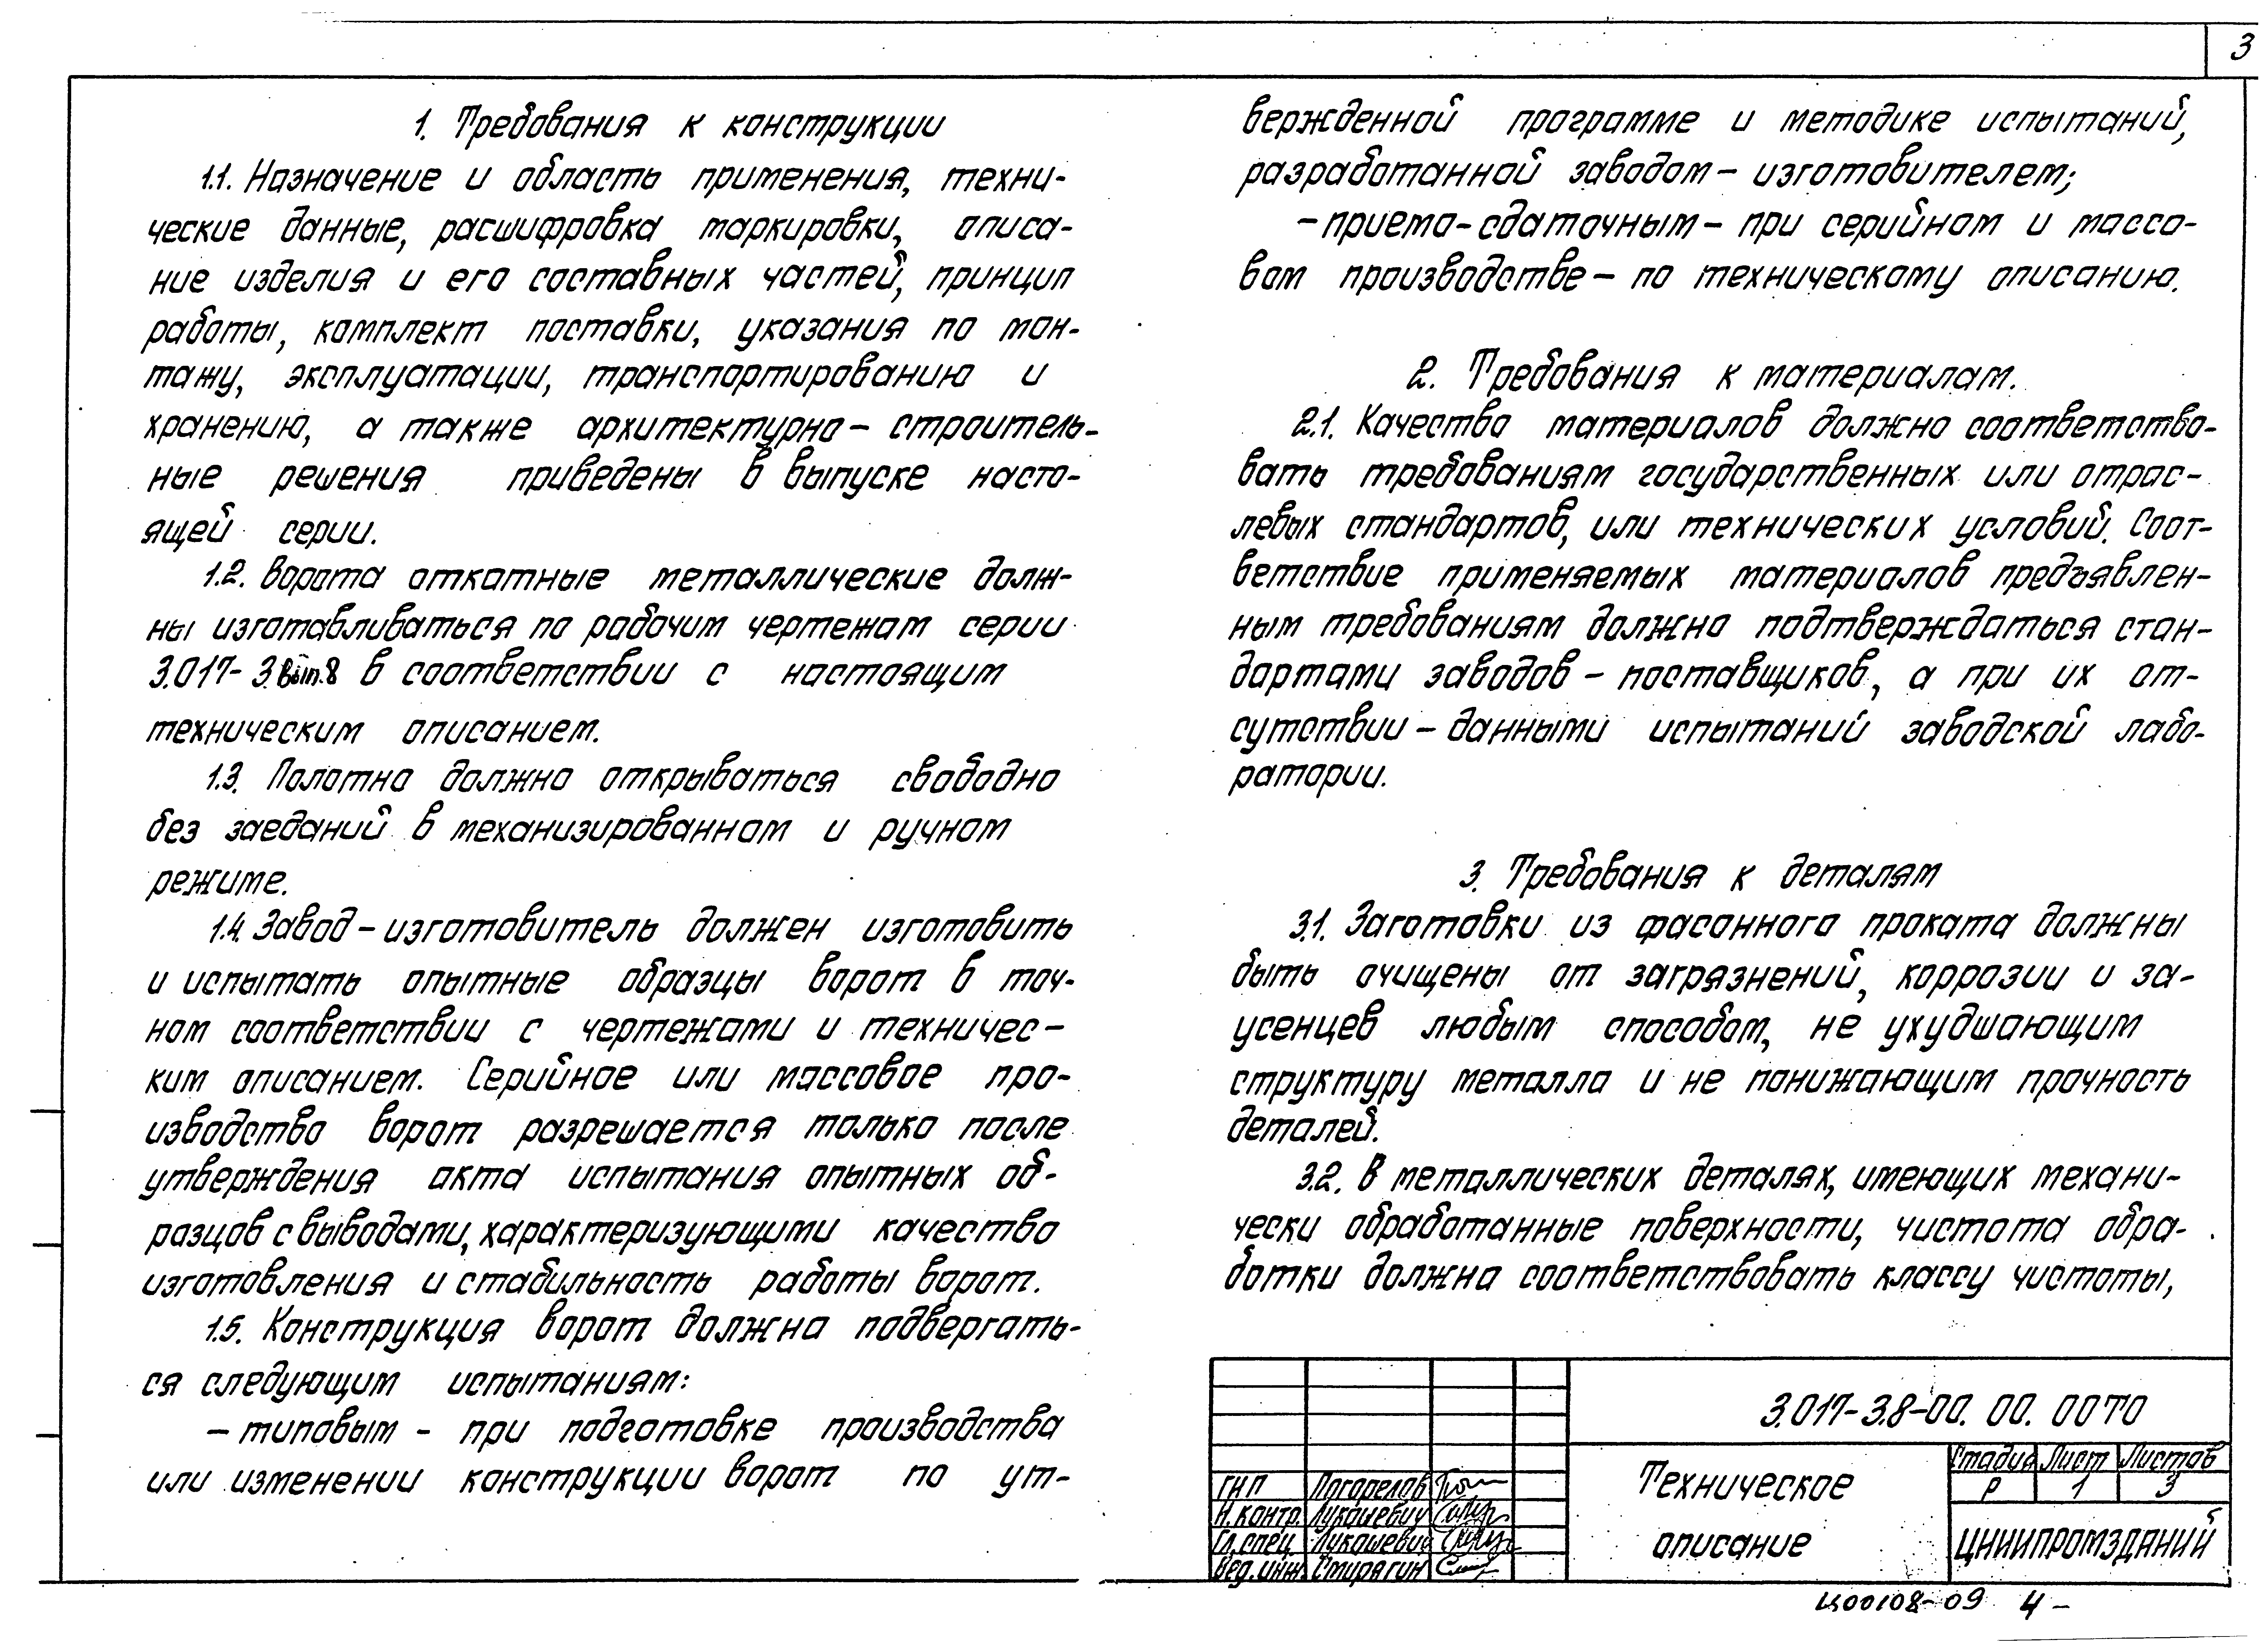 3
1. Требования к конструкции
1.1. Назначение и область применения, техни-
ческие данные, расшифровка маркировки, описа-
ние изделия и его составных частей, принцип
работы, комплект поставки, указания по мон-
тажу, эксплуатации, транспортированию и
хранению, а также архитектурно-строитель-
ные решения приведены в выпуске насто-
ящей серии.
1.2. Ворота откатные металлические долж-
ны изготавливаться по рабочим чертежам серии
3.017-3.вып.8 в соответствии с настоящим
техническим описанием.
1.3. Полотно должно открываться свободно
без заеданий в механизированном и ручном
режиме.
1.4. Завод-изготовитель должен изготовить
и испытать опытные образцы ворот в точ-
ном соответствии с чертежами и техничес-
ким описанием. Серийное или массовое про-
изводство ворот разрешается только после
утверждения акта испытания опытных об-
разцов с выводами, характеризующими качество
изготовления и стабильность работы ворот.
1.5. Конструкция ворот должна подвергать-
ся следующим испытаниям:
-типовым - при подготовке производства
или изменении конструкции ворот по ут-
вержденной программе и методике испытаний,
разработанной заводом-изготовителем;
-приемо-сдаточным- при серийном и массо-
вом производстве- по техническому описанию.
2. Требования к материалам.
2.1. Качество материалов должно соответство-
вать требованиям государственных или отрас-
левых стандартов, или технических условий. Соот-
ветствие применяемых материалов предъявлен-
ным требованиям должно подтверждаться стан-
дартами заводов-поставщиков, а при их от-
сутствии-данными испытаний заводской лабо-
ратории.
3. Требования к деталям
3.1. Заготовки из фасонного проката должны
быть очищены от загрязнений, коррозии и за-
усенцев любым способом, не ухудшающим
структуру металла и не понижающим прочность
деталей.
3.2. В металлических деталях, имеющих механи-
чески обработанные поверхности, чистота обра-
ботки должна соответствовать классу чистоты,
3.017-3.8-00.00.00ТО
Техническое
описание
Стадия Лист Листов
Р 1 3
ЦНИИПРОМЗДАНИЙ
ГИП Погорелов
Н.контр. Лукашевич
Гл.спец. Лукашевич
Вед.инж. Смирягин
Ц00108-09 4-